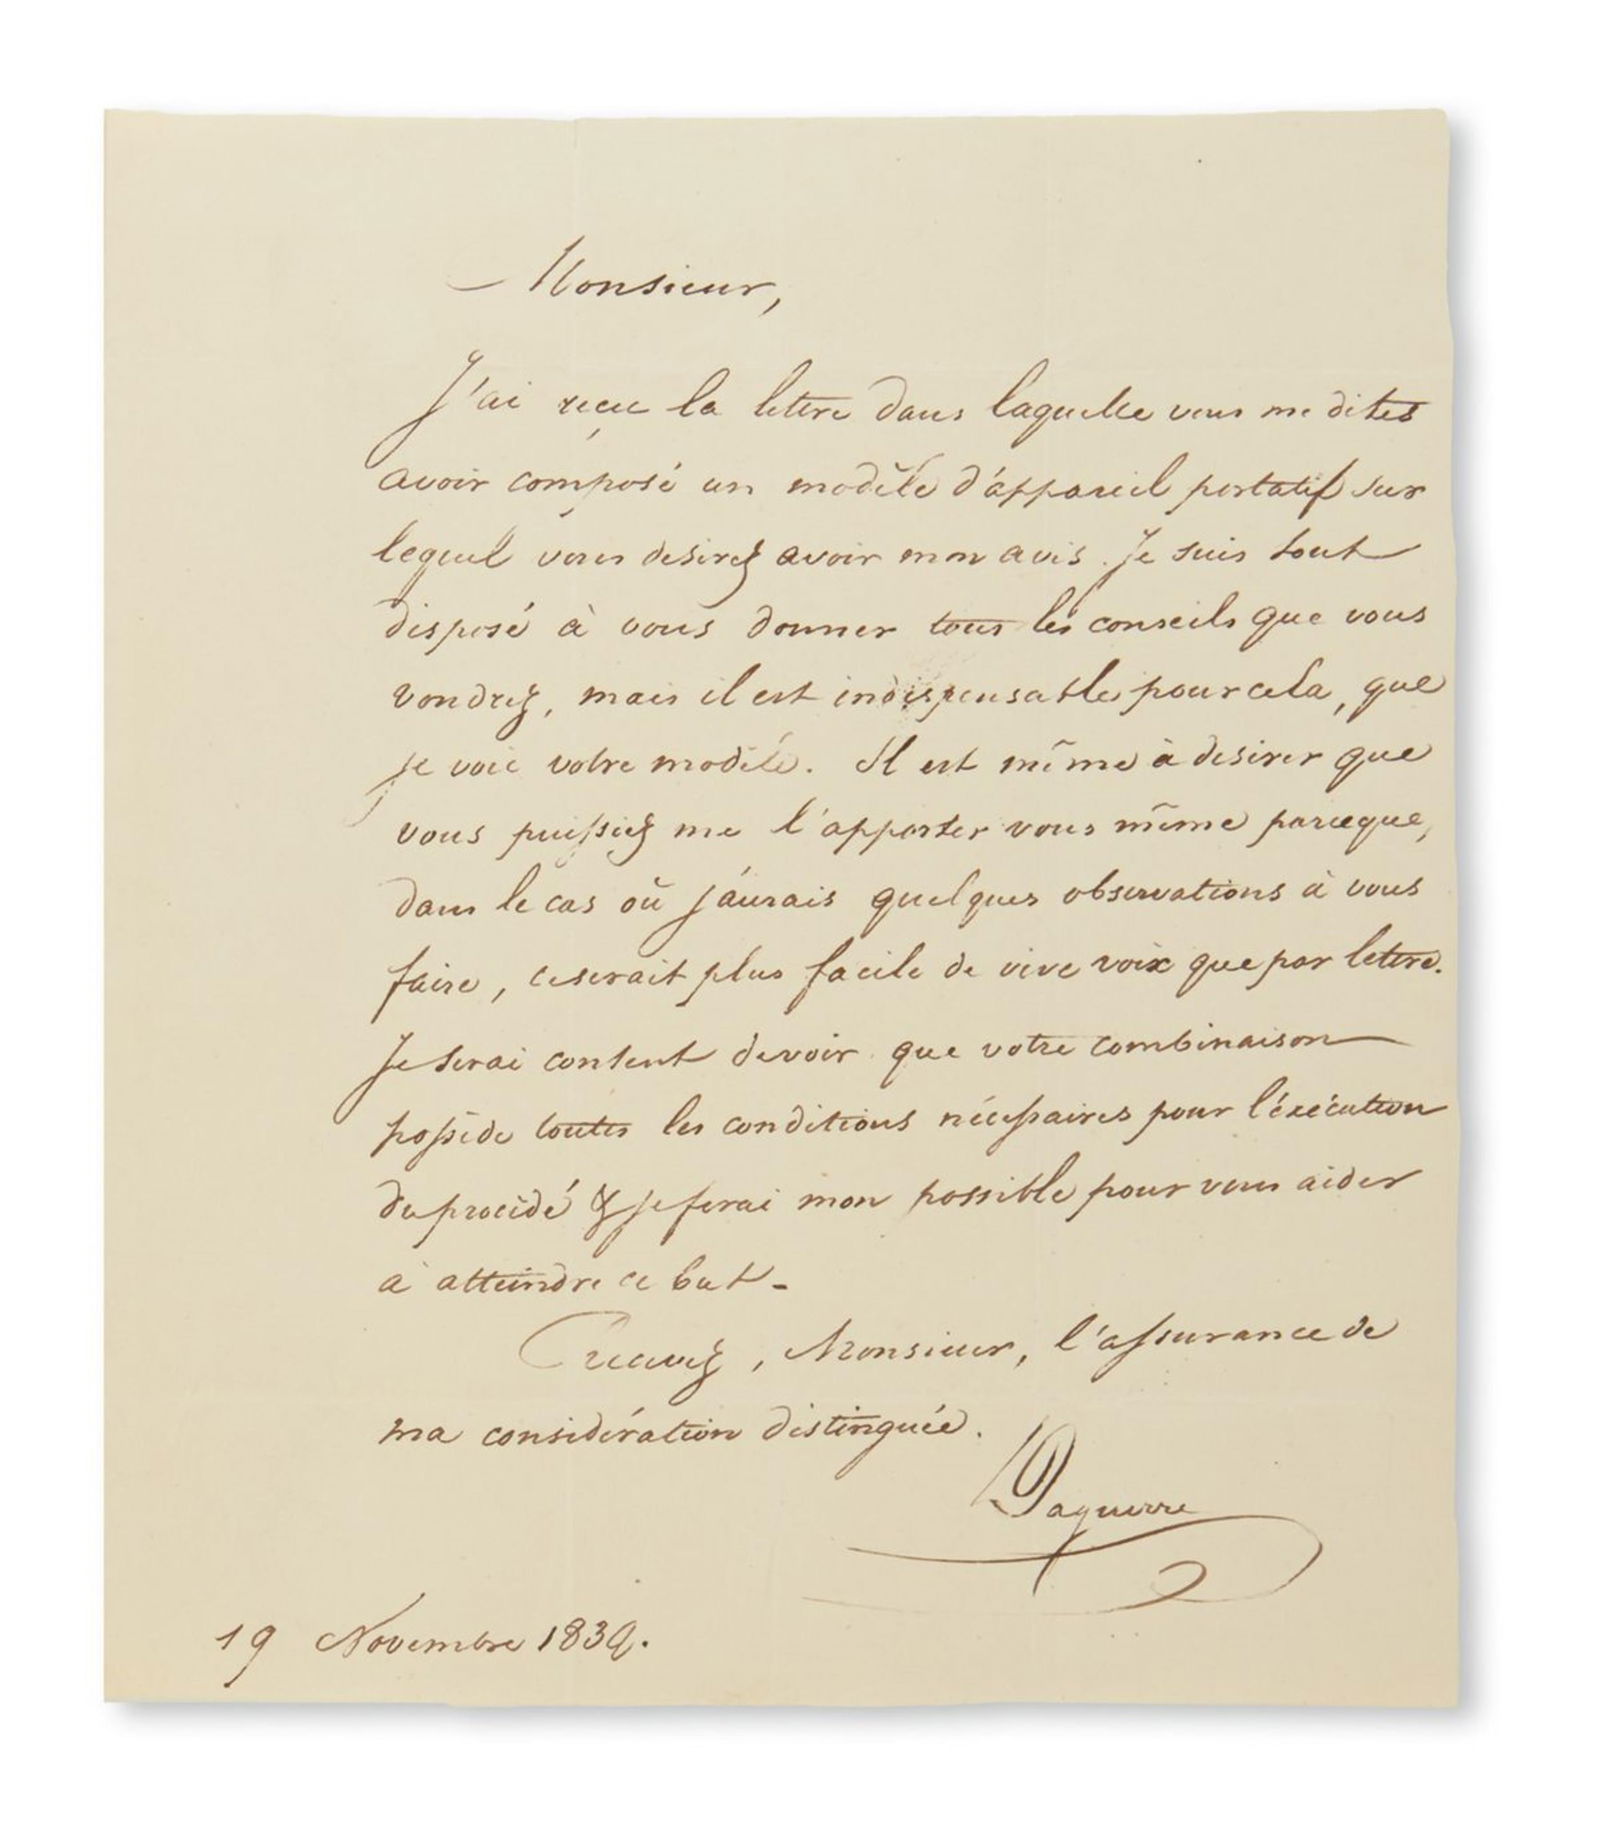 Monsieur,
J'ai reçu la lettre dans laquelle vous me dites
avoir composé un modèle d'appareil portatif sur
lequel vous desirez avoir mon avis. Je suis tout
disposé à vous donner tous les conseils que vous
voudrez, mais il est indispensable pour cela, que
je voie votre modèle. Il est même à desirer que
vous puissiez me l'apporter vous même parceque,
dans le cas où j'aurais quelques observations à vous
faire, ce serait plus facile de vive voix que par lettre.
Je serai content de voir que votre combinaison
possède toutes les conditions nécessaires pour l'éxécution
du procédé & je ferai mon possible pour vous aider
à atteindre ce but-
Recevez, Monsieur, l'assurance de
ma considération distinguée.
Daguerre
19 Novembre 1839.